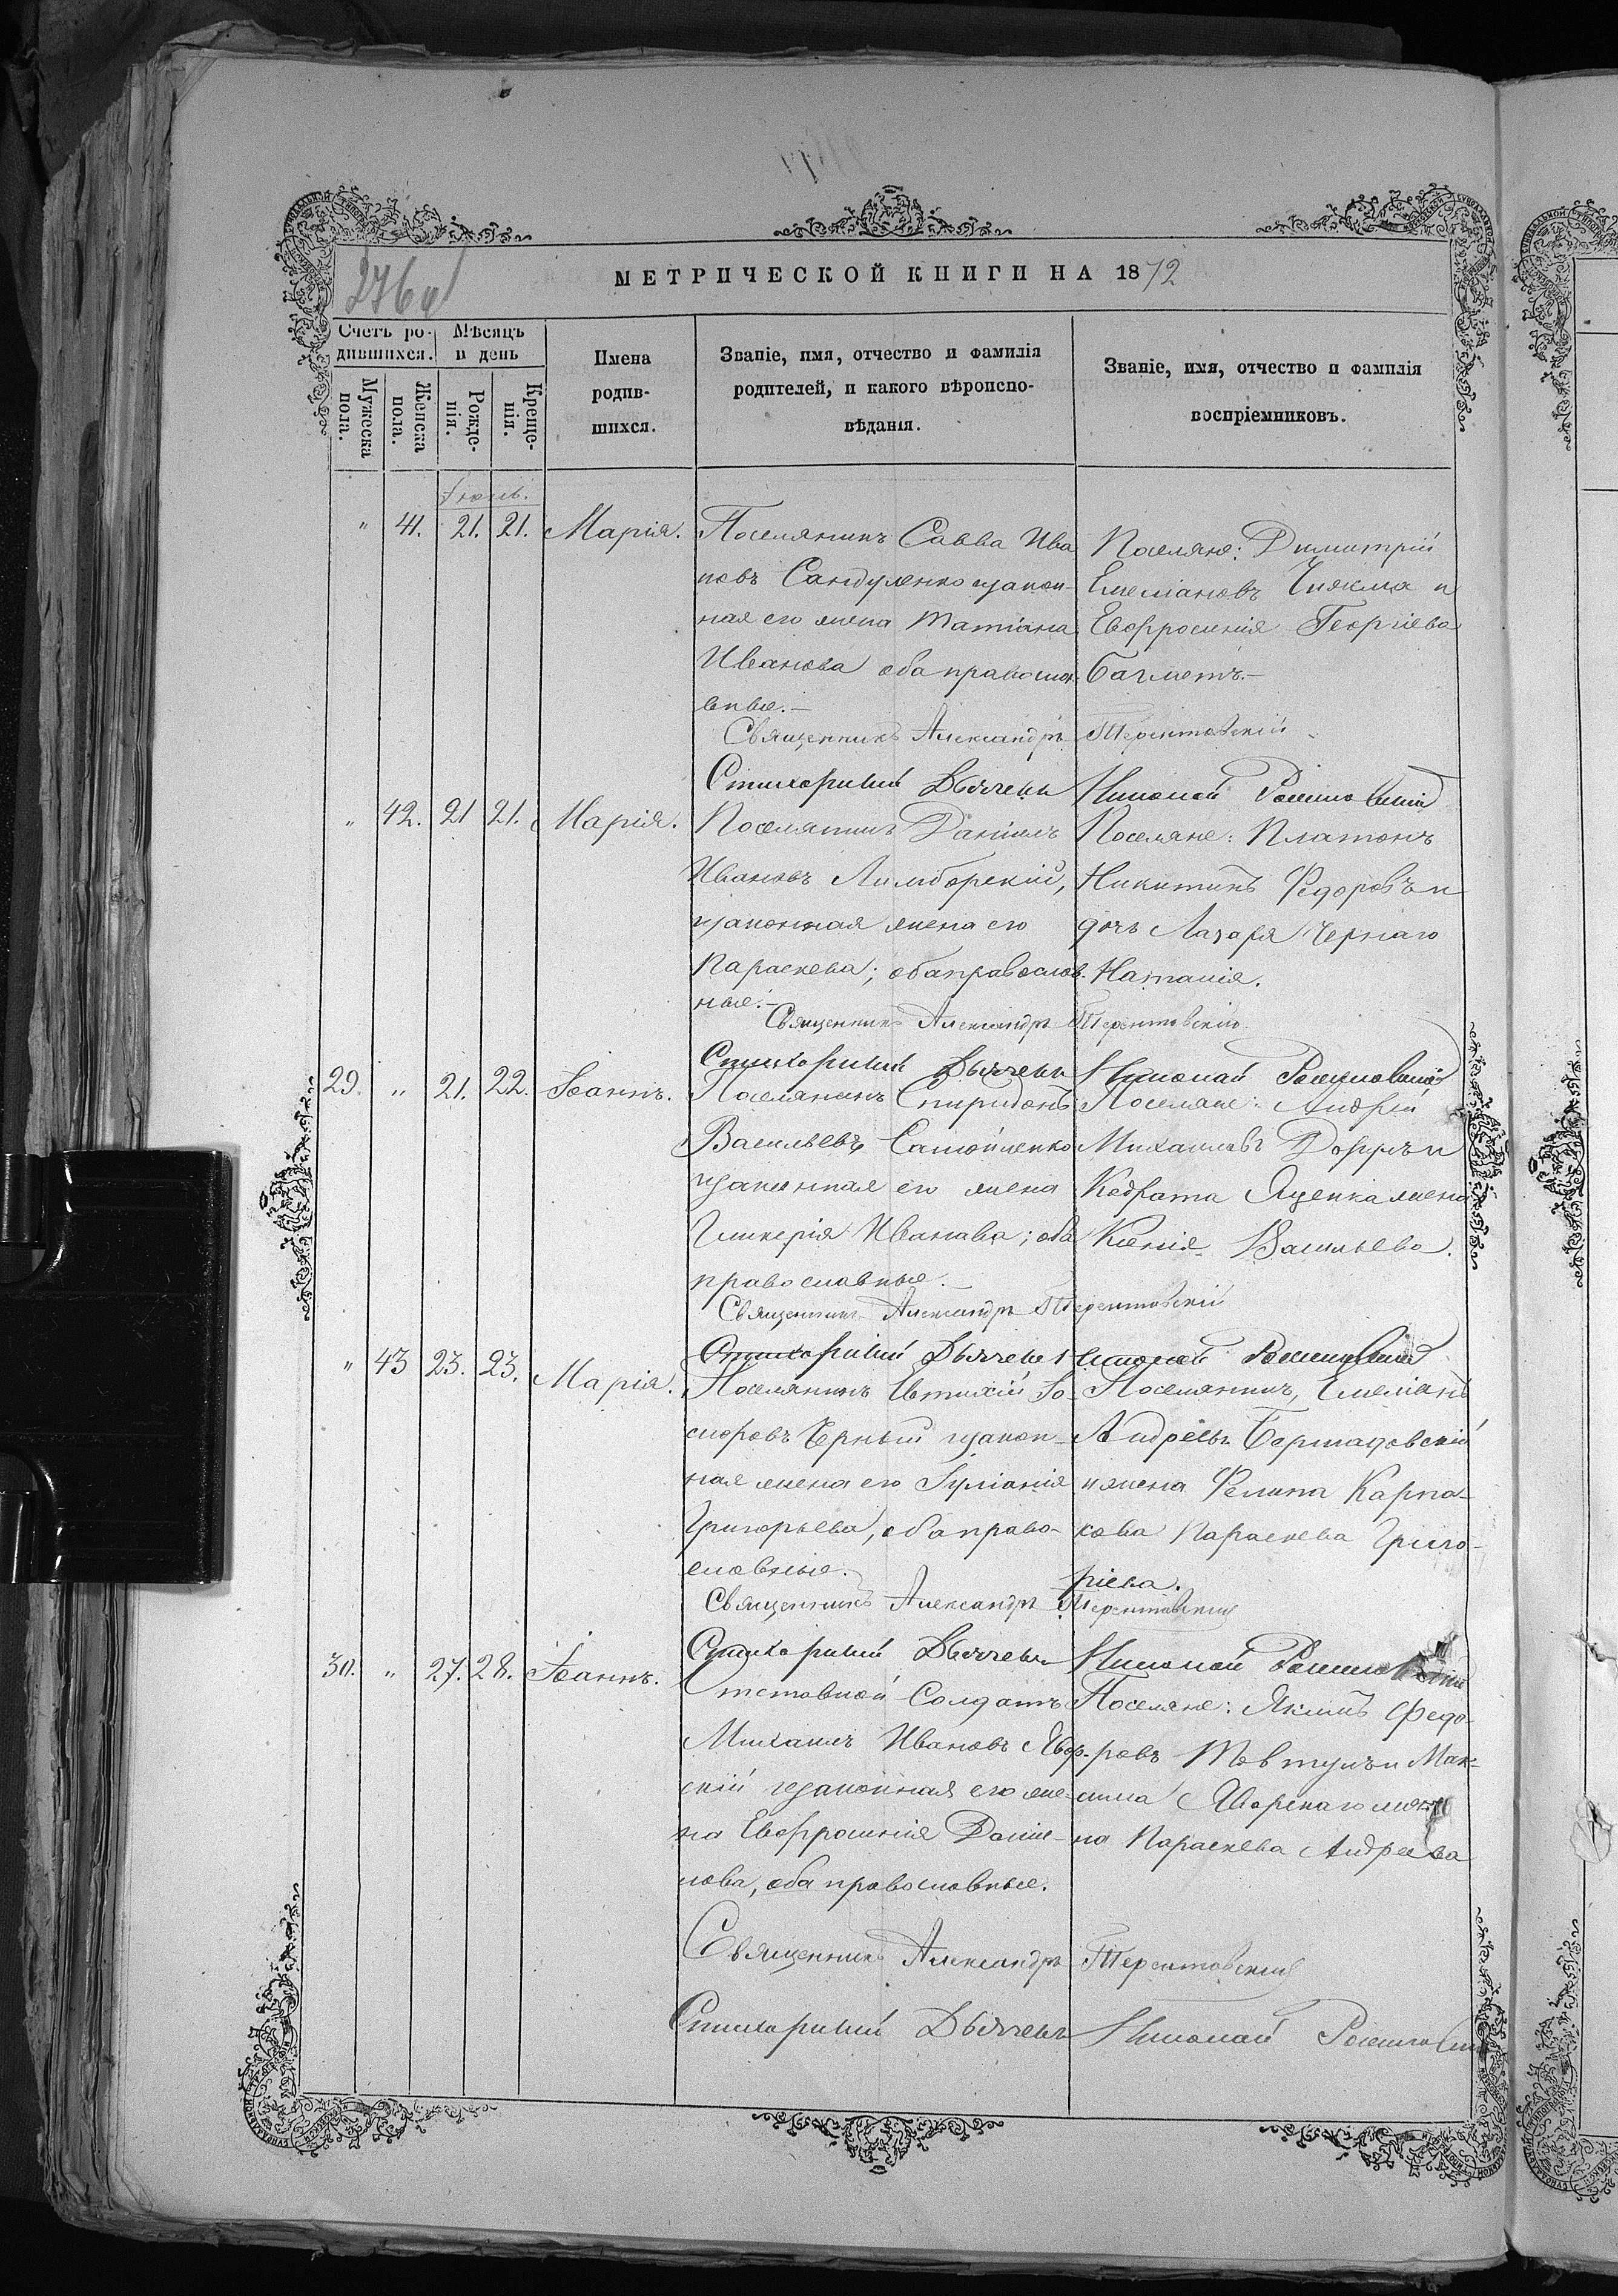 276 об
МЕТРИЧЕСКОЙ КНИГИ НА 1872
Счетъ ро-
дившихся.
Мѣсяцъ
и день
Мужеска
пола.
Женска
пола.
Рожде-
нія.
Креще-
нія.
Имена
родив-
шихся.
Званіе, имя, отчество и фамилія
родителей, и какого вѣроиспо-
вѣданія.
Званіе, имя, отчество и фамилія
воспріемниковъ.
" 41. 21. 21. Марія.
Поселянинъ Савва Ива
новъ Сандуленко изакон-
ная его жена Татіана
Иванова оба правосла-
вные.-
Поселяне: Димитрій
Емеліановъ и
Евфросинія Георгіева
Багметъ.-
Священникъ Александръ Терентовскій
Стихарный Дьячекъ Николай
" 42. 21 21. Марія.
Поселянинъ Даніилъ
Ивановъ Лимборскій,
изаконная жена его
Параскева; оба православ-
ные.-
Поселяне: Платонъ
Никитинъ Федоровъ и
дочь Лазаря Чернаго
Наталія.
Священникъ Александръ Терентовскій
Стихарный Дьячекъ Николай
29. " 21. 22. Іоаннъ.
Поселянинъ Спиридонъ
Васильевъ Самойленко
изаконная его жена
Гликерія Иванова; оба
православные.-
Поселяне: Андрей
Михаиловъ и
Кодрата Яценка жена
Ксенія Васильева.
Священникъ Александръ Терентовскій
Стихарный Дьячекъ Николай
" 43 23. 23. Марія.
Поселянинъ Евтихій Іо-
сифовъ Черный изакон-
ная жена его Іуліанія
Григорьева, оба право-
славные.
Поселянинъ, Емеліанъ
Андреевъ Бершадовскій
и жена Филипа Карпа-
кова Параскева Григо-
ріева.
Священникъ Александръ Терентовскій
Стихарный Дьячекъ Николай
30. " 27. 28. Іоаннъ.
Отставной Солдатъ
Михаилъ Ивановъ Явор-
скій изаконная его же-
на Евфросинія Даніи-
лова, оба православные.
Поселяне: Якимъ Федо-
ровъ Товтулъ и Мак-
сима Яворскаго же-
на Параскева Андреева
Священникъ Александръ Терентовскій
Стихарный Дьячекъ Николай